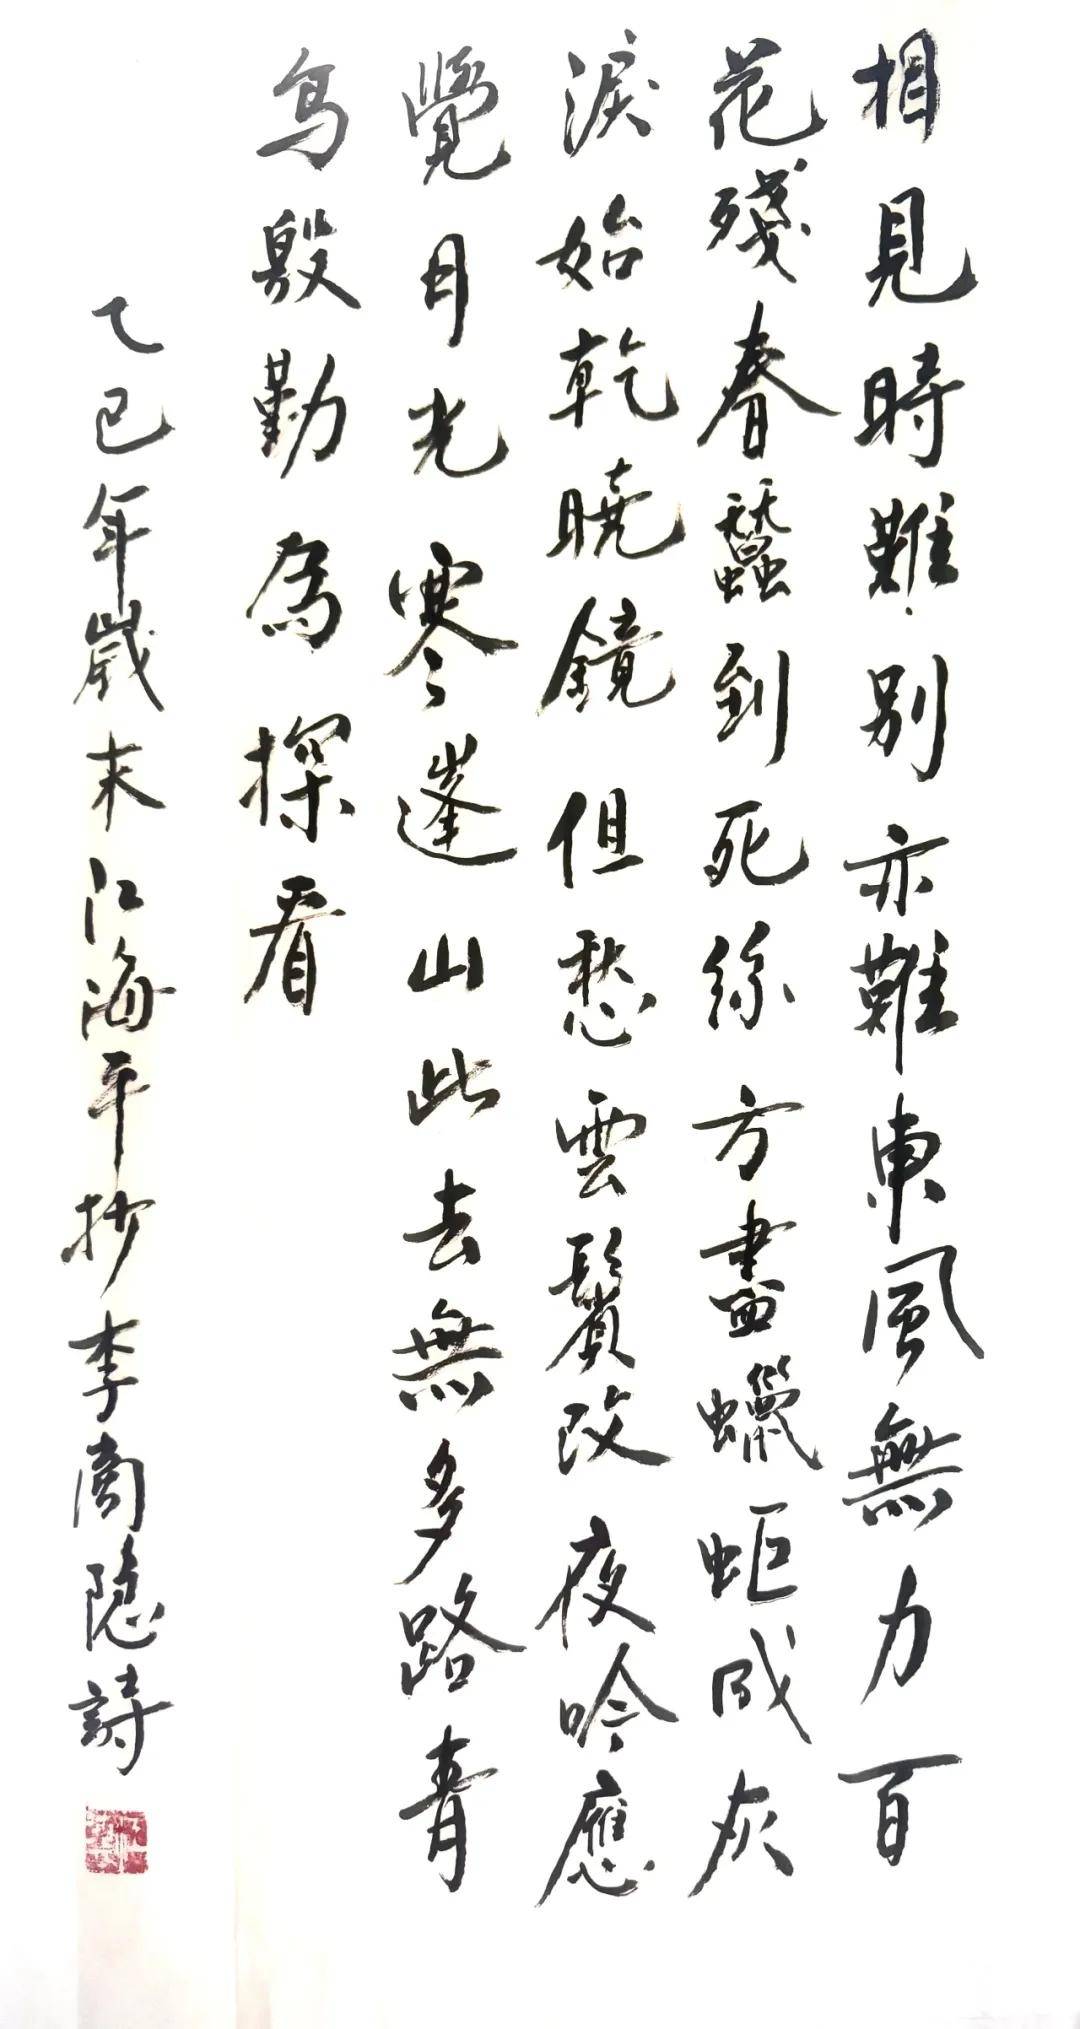 相見時難別亦難東風無力百
花殘春蠶到死絲方盡蠟炬成灰
淚始乾曉鏡但愁雲鬢改夜吟應
覺月光寒蓬山此去無多路青
鸟殷勤為探看
乙巳年歲末江海平抄李商隐詩